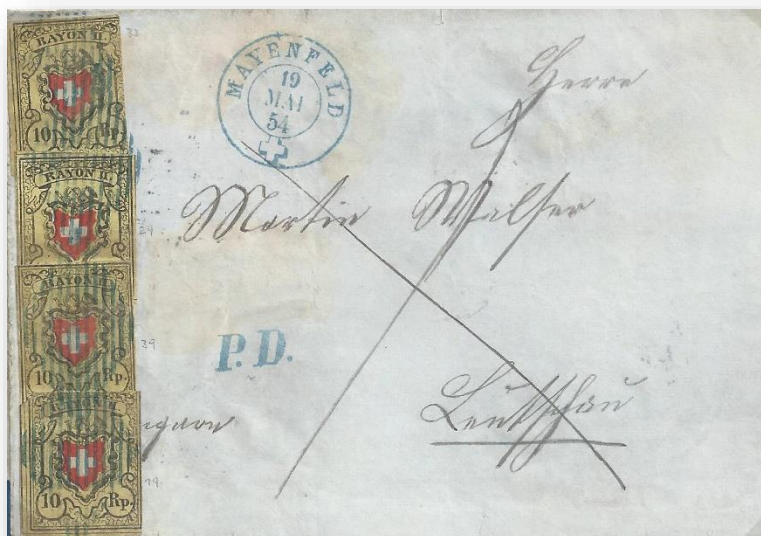 RAYON II.
10 Rp.
RAYON II.
RAYON II.
10 Rp.
10 Rp.
MAYENFELD
19
MAI
54
Herrn
Martin Walser
P.D.
Leutschau